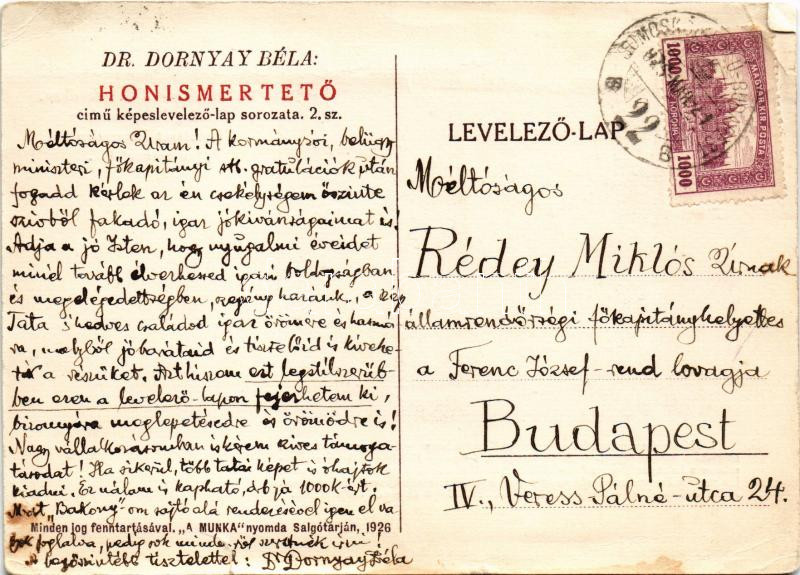 DR. DORNYAY BÉLA:
HONISMERTETŐ
című képeslevelező-lap sorozata. 2. sz.
Méltóságos Uram! A kormánysói, belügy-
miniszteri, főkapitányi stb. gratulációk után
fogadd kérlek az én csekélységem őszinte
szivből fakadó, igaz jókivánságaimat is!
Adja a jó Isten, hogy nyugalmi éveidet
minél tovább élvezhessed igazi boldogságban
és megelégedettségben, szegény hazánk, a régi
Tata s kedves családod igaz örömére és haszná-
ra, melyből jóbarátaid és tisztelőid is kivehe-
a részüket. Azt hiszem ezt legstilszerűb-
ben ezen a levelező-lapon fejezhetem ki,
bizonyára meglepetésedre és örömödre is!
Nagy vállalkozásomban is kérem szives támoga-
tásodat! Ha sikerül, több tatai képet is óhajtok
kiadni. Ez nálam is kapható, drbja 1000 K-ért.
Most „Bakony"-om sajtó alá rendezésével igen el va-
Minden jog fenntartásával. „A MUNKA" nyomda Salgótarján, 1926
gyok foglalva, pedig sok minden-ről szeretnék irni!
A legőszintébb tisztelettel: Dr Dornyay Béla
LEVELEZŐ-LAP
MAGYAR KIR. POSTA
1000 KORONA 1000
22
Méltóságos
Rédey Miklós Úrnak
államrendőrségi főkapitányhelyettes
a Ferenc József-rend lovagja
Budapest
IV., Veress Pálné-utca 24.